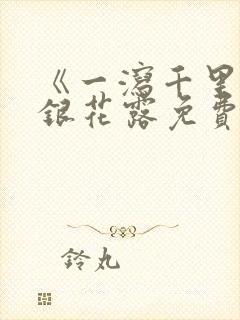 《一瀉千里
銀花露免費
鈴丸